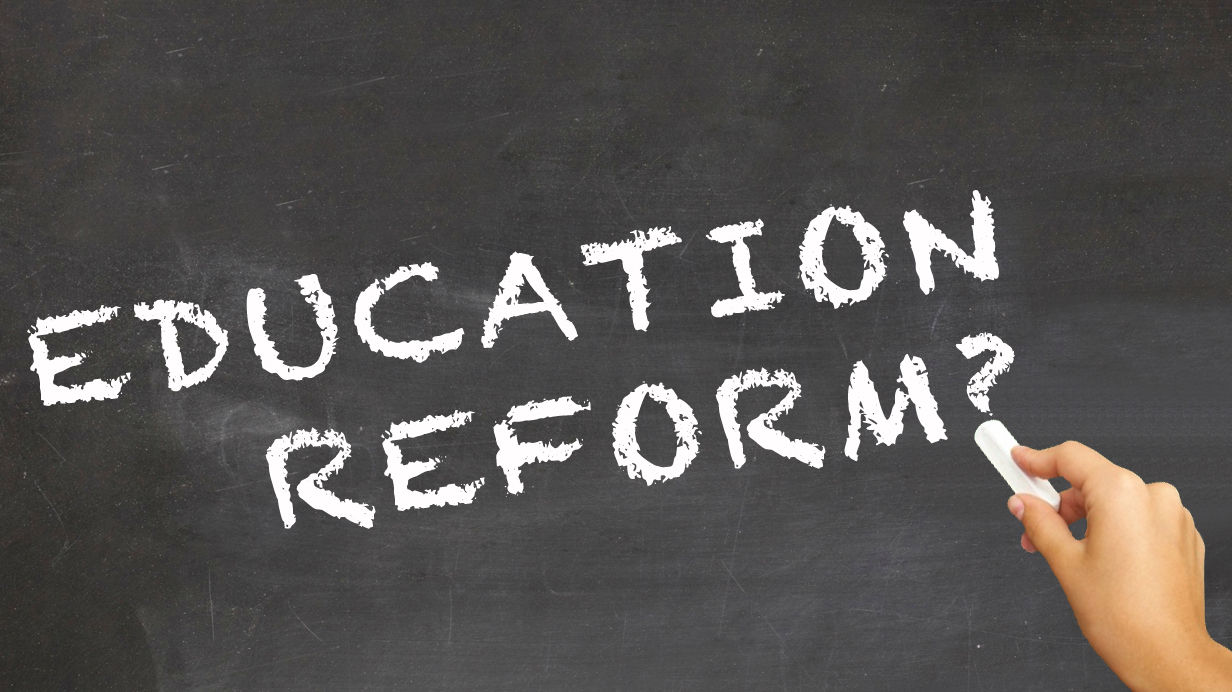 EDUCATION
REFORM?